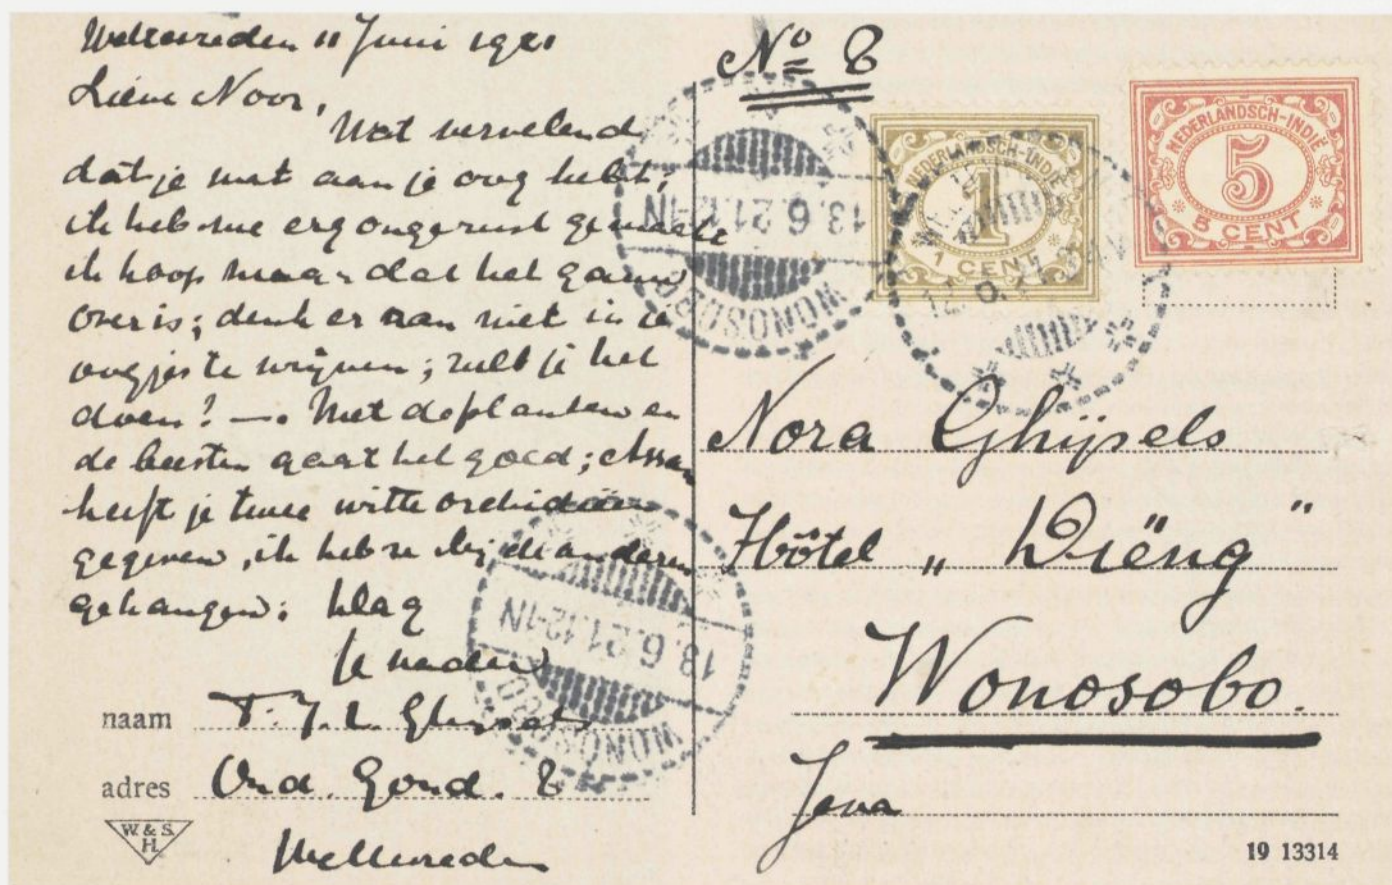 Weltevreden 11 Juni 1921
Lieve Noor,
Wat vervelend
dat je wat aan je oog hebt;
ik heb me erg ongerust gemaakt
ik hoop maar dat het gauw
over is; denk er aan niet in je
oogjes te wrijven; zult je het
doen? —. Met de planten en
de beesten gaat het goed; Assan
heeft je twee witte orchideeën
gegeven, ik heb ze bij de anderen
gehangen. Dag
je vader
naam F. J. L. Ghijsels
adres Oud. Gond. 8
Weltevreden
W. & S.
H.
No 8
NEDERLANDSCH-INDIË
1
1 CENT
NEDERLANDSCH-INDIË
5
5 CENT
WONOSOBO
13.6.21.12-1N
WONOSOBO
13.6.21.12-1N
Nora Ghijsels
Hôtel „Diëng"
Wonosobo.
Java
19 13314